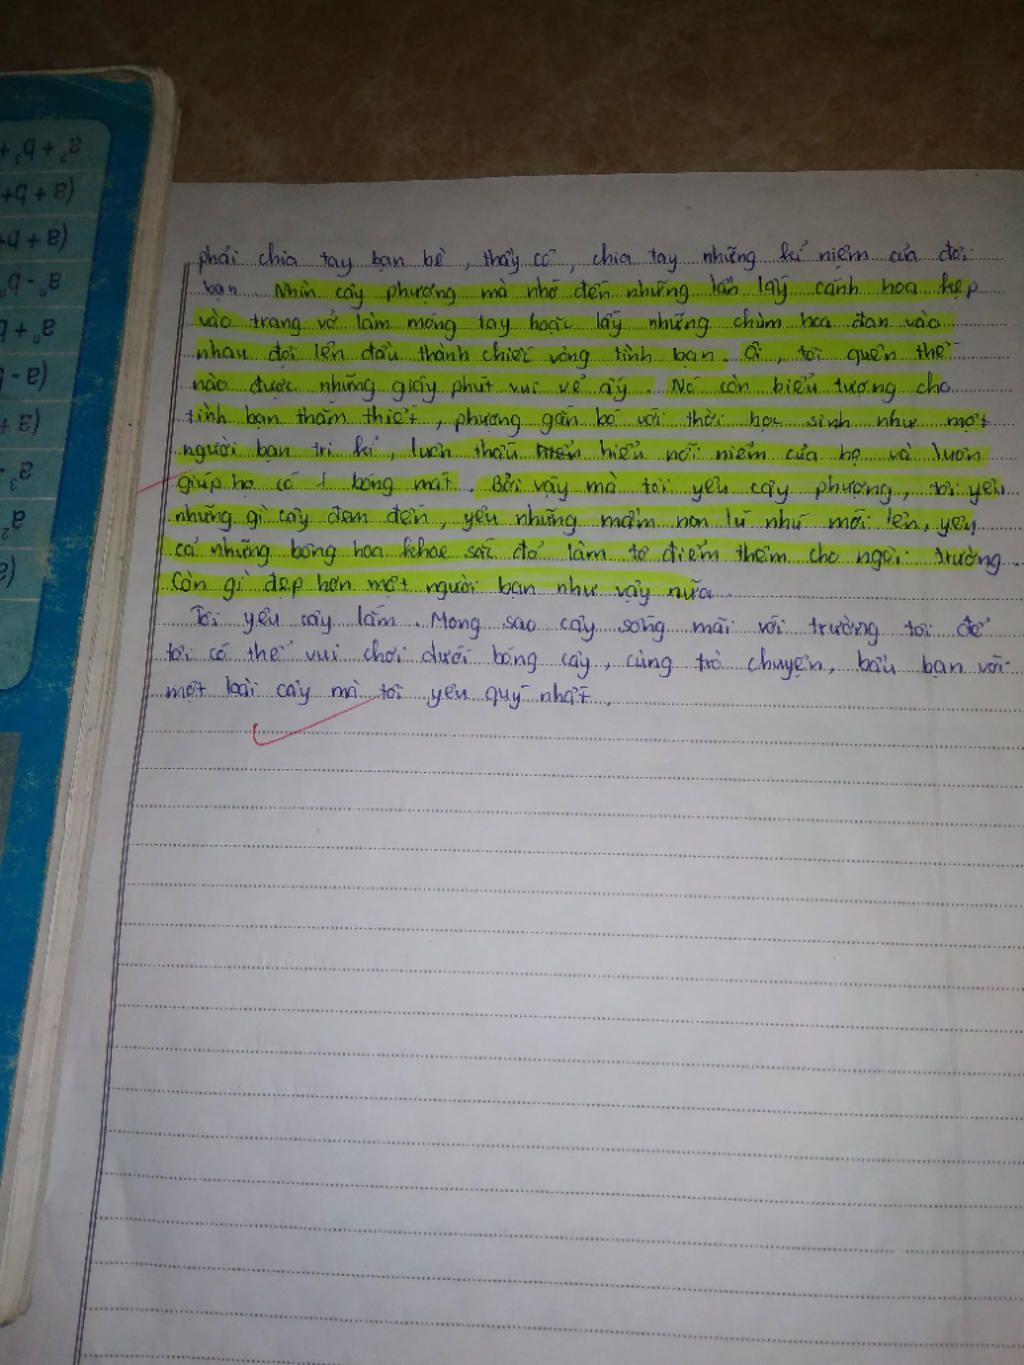 phải chia tay bạn bè, thầy cô, chia tay những kỉ niệm của đời
bạn. Nhìn cây phượng mà nhớ đến những lần lấy cánh hoa kẹp
vào trang vở làm móng tay hoặc lấy những chùm hoa đan vào
nhau đội lên đầu thành chiếc vòng tình bạn. Ôi, tôi quên thế
nào được những giây phút vui vẻ ấy. Nó còn biểu tượng cho
tình bạn thắm thiết, phượng gắn bó với thời học sinh như một
người bạn tri kỉ, luôn thấu hiểu nỗi niềm của họ và luôn
giúp họ có 1 bóng mát. Bởi vậy mà tôi yêu cây phượng, tôi yêu
những gì cây đem đến, yêu những mầm non lú nhú mới lên, yêu
cả những bông hoa khoe sắc đỏ làm tô điểm thêm cho ngôi trường.
Còn gì đẹp hơn một người bạn như vậy nữa.
Tôi yêu cây lắm. Mong sao cây sống mãi với trường tôi để
tôi có thể vui chơi dưới bóng cây, cùng trò chuyện, bầu bạn với
một loài cây mà tôi yêu quý nhất.
a³ + b³ +
(a + b +
(a + b)
aⁿ - bⁿ
aⁿ + b
(a - b
(a +
a³ -
a²
(a